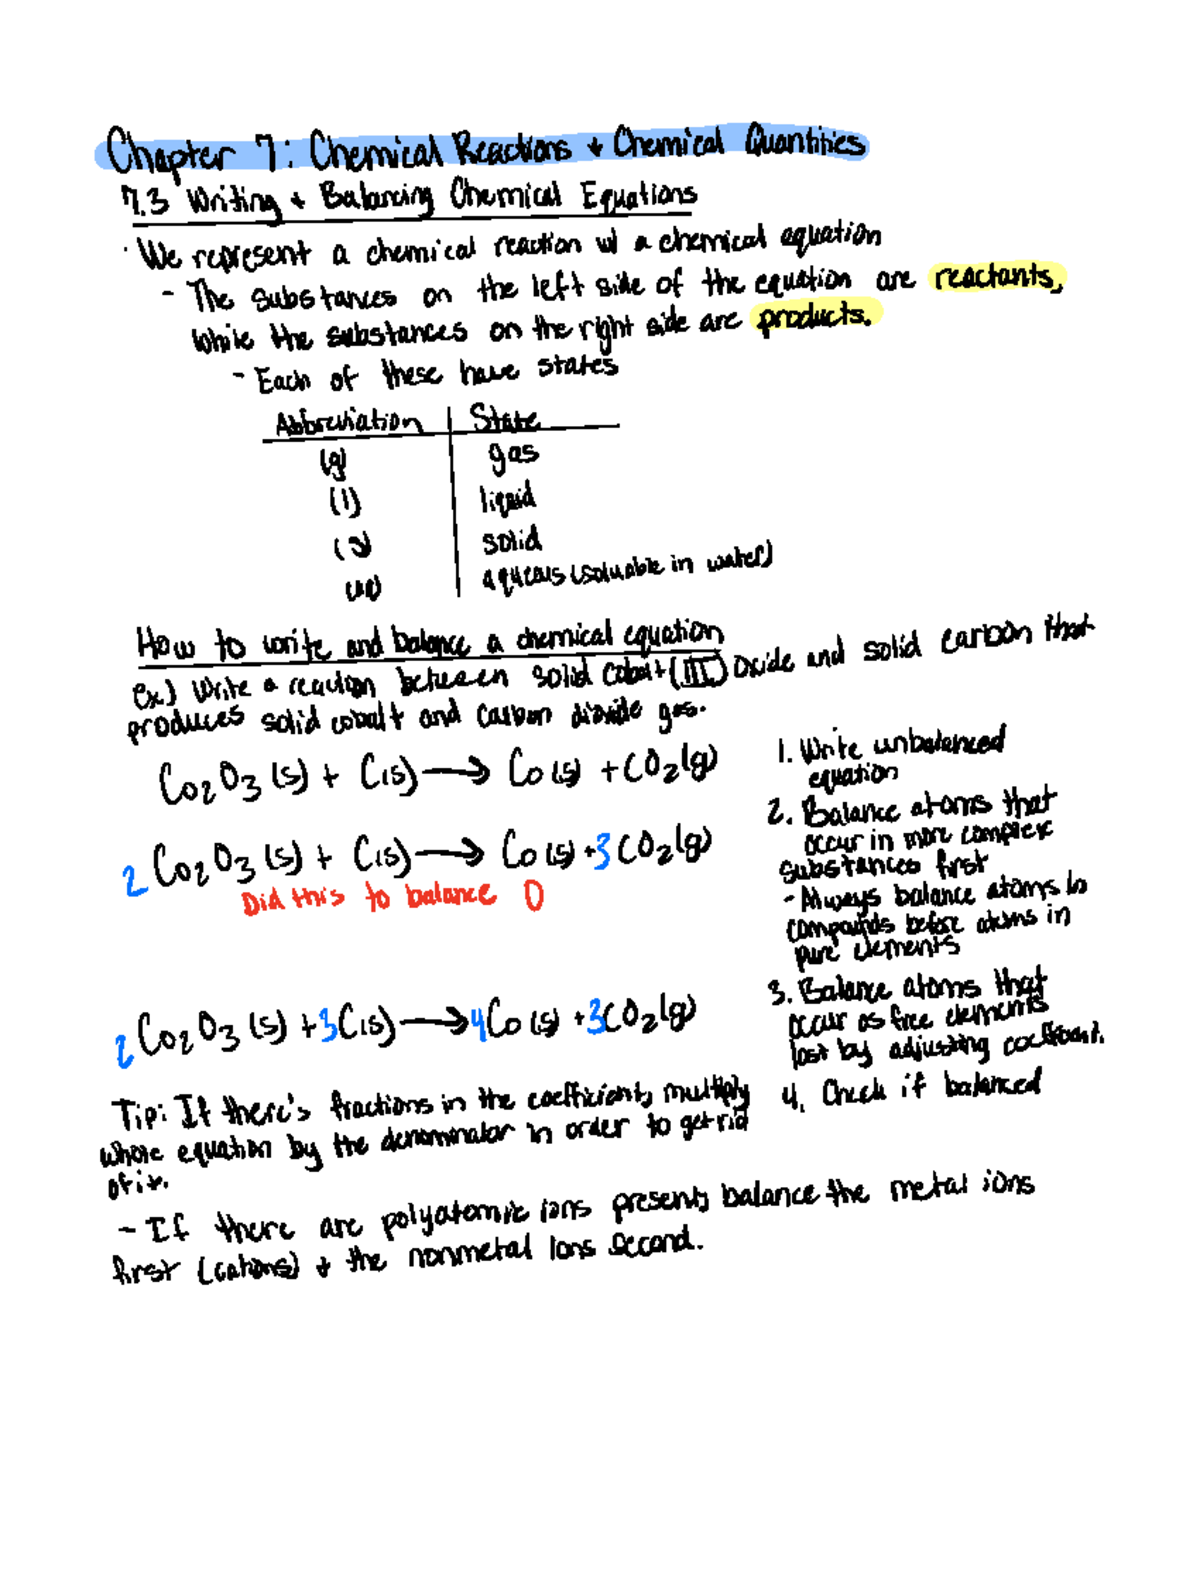 Chapter 7: Chemical Reactions + Chemical Quantities
7.3 Writing + Balancing Chemical Equations
· We represent a chemical reaction w/ a chemical equation
- The substances on the left side of the equation are reactants,
while the substances on the right side are products.
- Each of these have states
Abbreviation | State
(g) gas
(l) liquid
(s) solid
(aq) aqueous (soluable in water)
How to write and balance a chemical equation
ex) Write a reaction between solid cobalt (III) oxide and solid carbon that
produces solid cobalt and carbon dioxide gas.
Co2O3 (s) + C(s) → Co (s) + CO2(g)
2 Co2O3 (s) + C(s) → Co (s) + 3 CO2(g)
Did this to balance O
2 Co2O3 (s) + 3C(s) → 4Co (s) + 3CO2(g)
1. Write unbalanced
equation
2. Balance atoms that
occur in more complex
substances first
- Always balance atoms in
compounds before atoms in
pure elements
3. Balance atoms that
occur as free elements
last by adjusting coefficient.
4. Check if balanced
Tip: If there's fractions in the coefficients, multiply
whole equation by the denominator in order to get rid
of it.
- If there are polyatomic ions present, balance the metal ions
first (cations) + the nonmetal ions second.